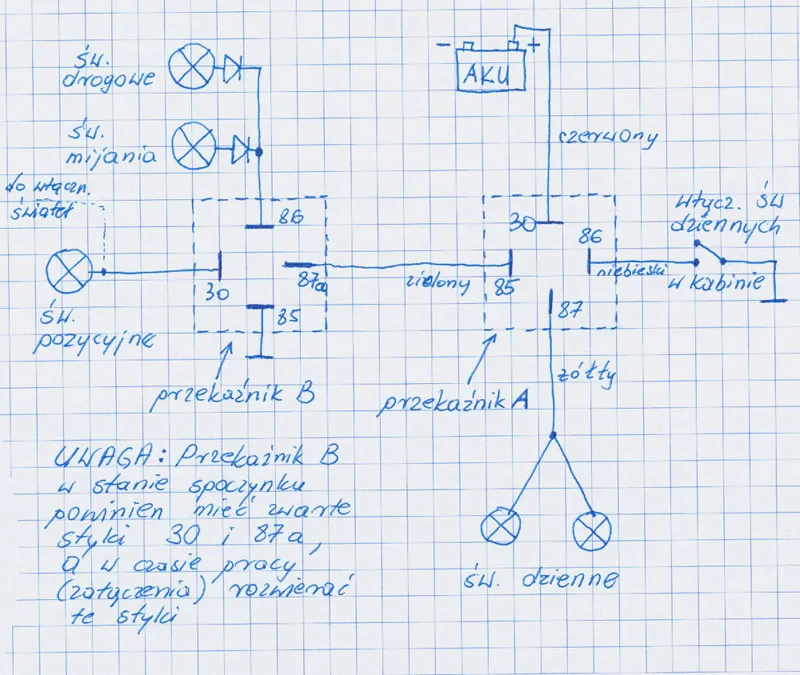 św.
drogowe
św.
mijania
do włączn.
świateł
św.
pozycyjne
86
30
87a
85
przekaźnik B
- +
AKU
czerwony
30
86
85
87
zielony
niebieski
włącz. św
dziennych
w kabinie
przekaźnik A
żółty
św. dzienne
UWAGA: Przekaźnik B
w stanie spoczynku
powinien mieć zwarte
styki 30 i 87a,
a w czasie pracy
(załączenia) rozwierać
te styki